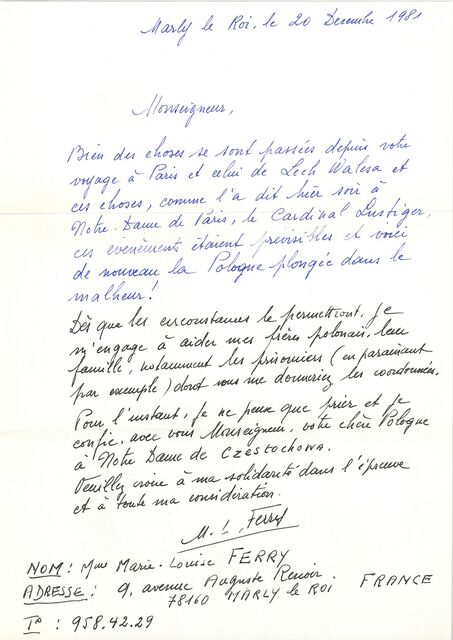 Marly le Roi, le 20 Decembre 1981
Monseigneur,
Bien des choses se sont passées depuis votre
voyage à Paris et celui de Lech Walesa et
ces choses, comme l'a dit hier soir à
Notre-Dame de Paris, le Cardinal Lustiger,
ces evenèments étaient prévisibles et voici
de nouveau la Pologne plongée dans le
malheur!
Dès que les circonstances le permettront, je
m'engage à aider mes frères polonais, leur
famille, notamment les prisonniers (en parrainant
par exemple) dont vous me donneriez les coordonnées.
Pour l'instant, je ne peux que prier et je
confie, avec vous Monseigneur, votre chère Pologne
à Notre Dame de CZESTOCHOWA.
Veuillez croire à ma solidarité dans l'épreuve
et à toute ma considération.
M. L. Ferry
NOM : Mme Marie-Louise FERRY
ADRESSE : 9, avenue Auguste Renoir
78160 MARLY le ROI FRANCE
T° : 958.42.29